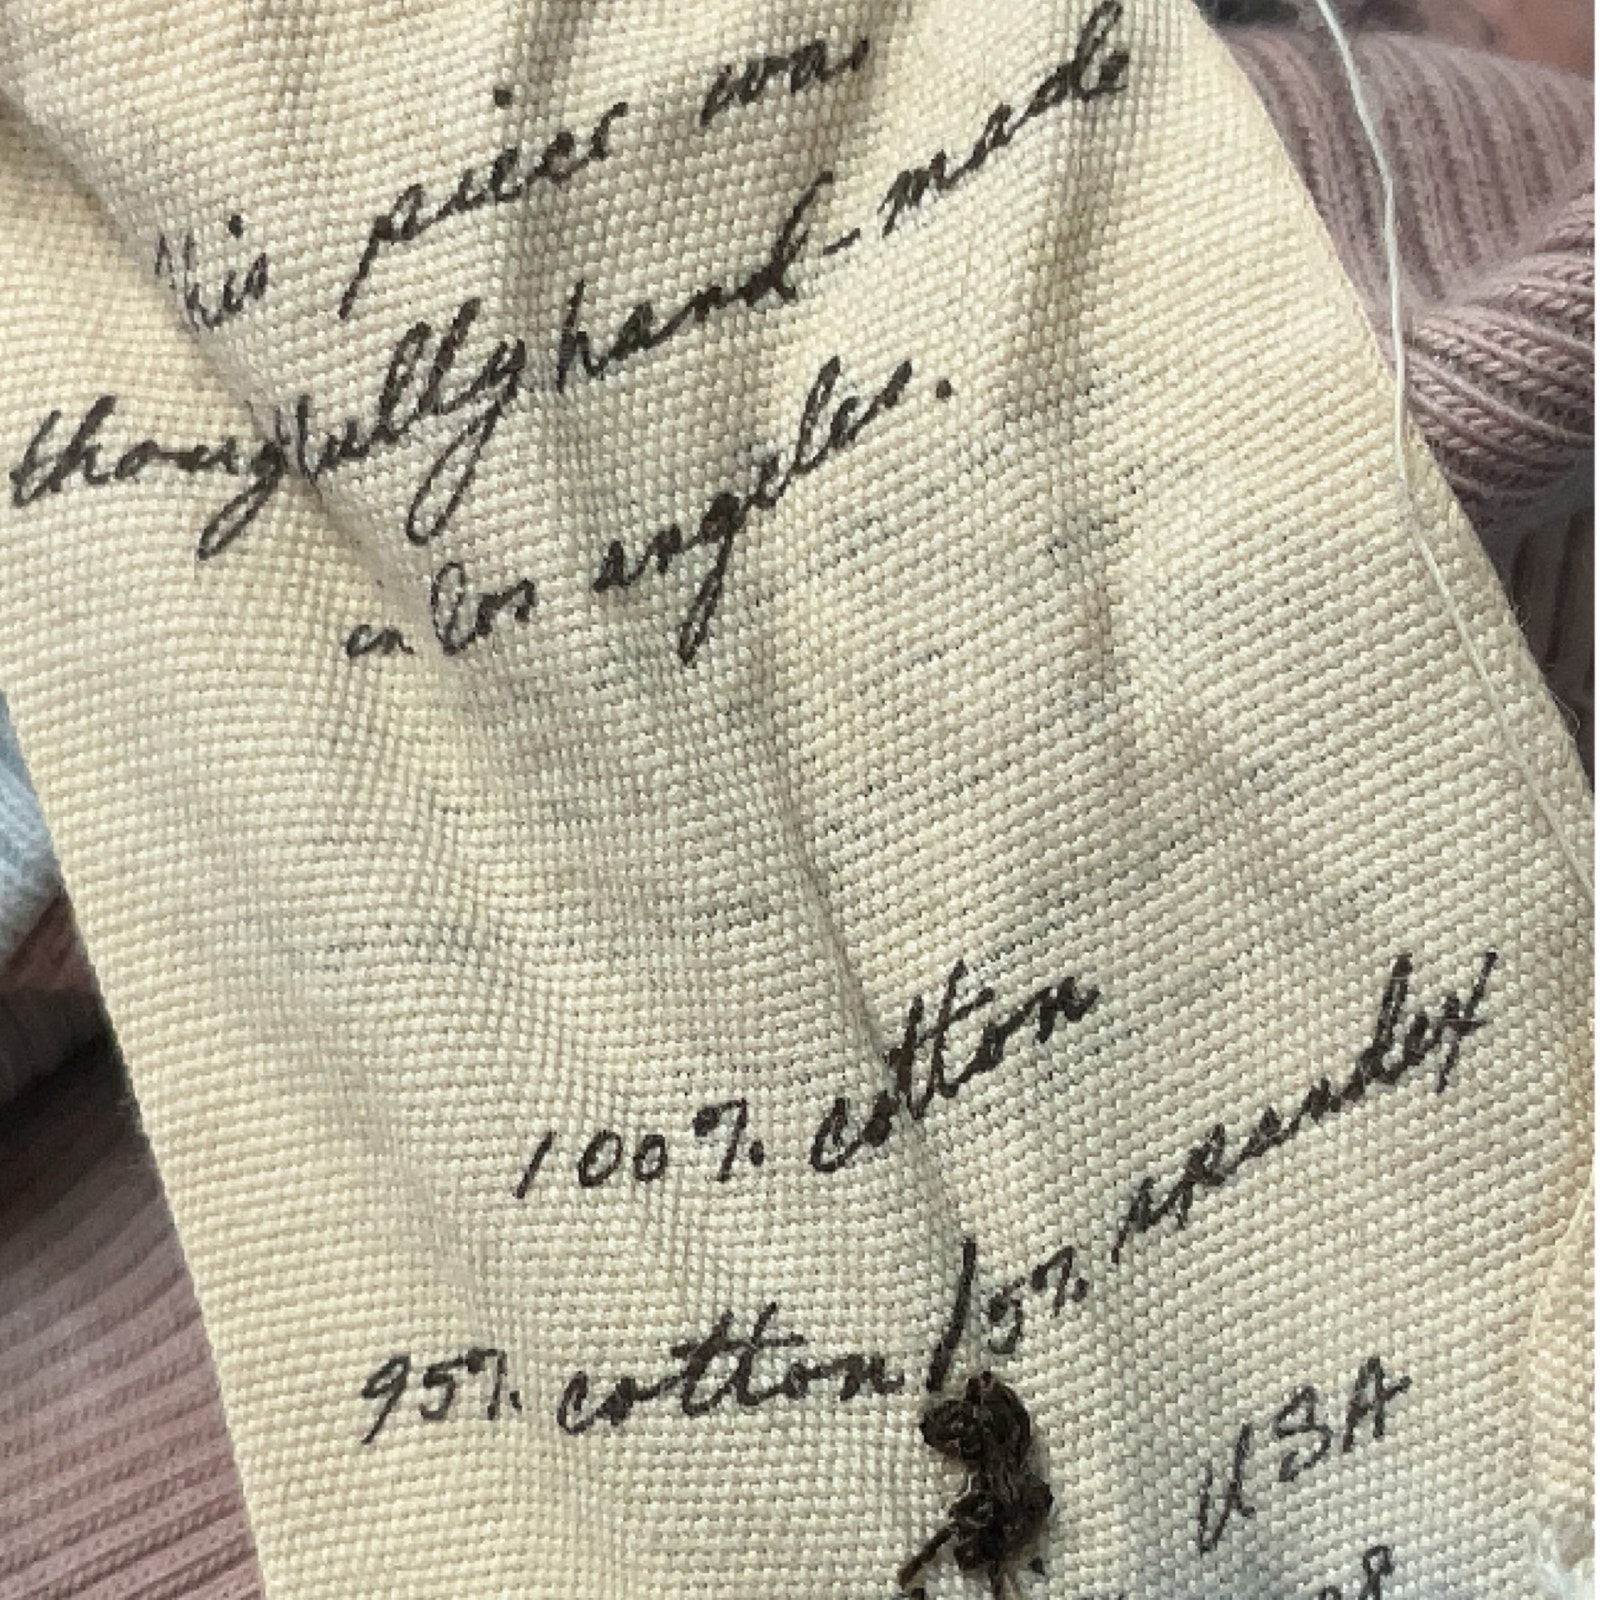 this piece was
thougfully hand-made
in los angeles.
100% cotton
95% cotton / 5% spandex
USA